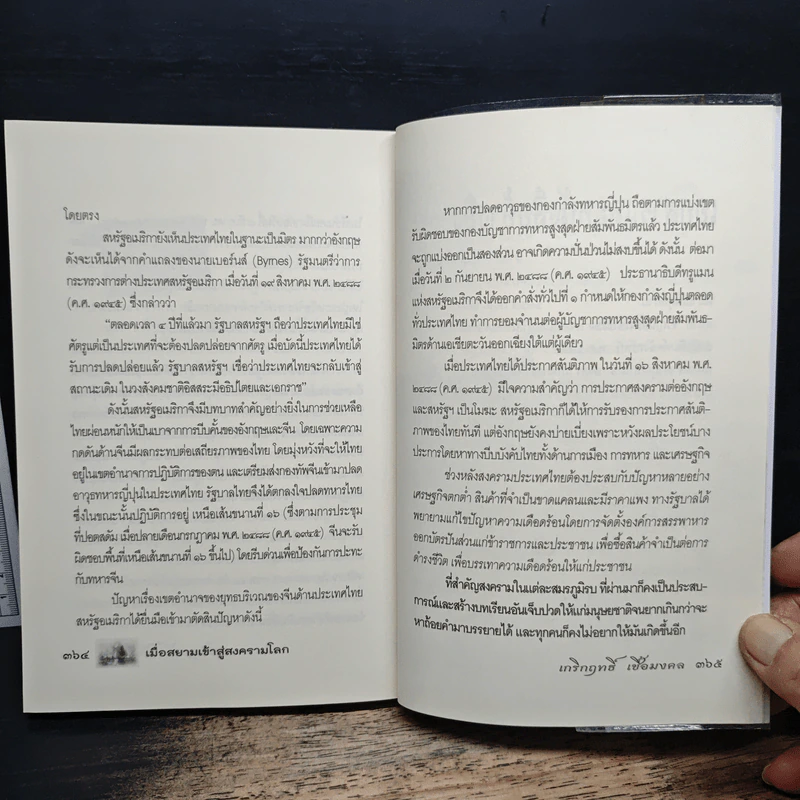 โดยตรง
สหรัฐอเมริกายังเห็นประเทศไทยในฐานะเป็นมิตร มากกว่าอังกฤษ
ดังจะเห็นได้จากคำแถลงของนายเบอร์นส์ (Byrnes) รัฐมนตรีว่าการ
กระทรวงการต่างประเทศสหรัฐอเมริกา เมื่อวันที่ ๑๙ สิงหาคม พ.ศ. ๒๔๘๘
(ค.ศ. ๑๙๔๕) ซึ่งกล่าวว่า
“ตลอดเวลา ๔ ปีที่แล้วมา รัฐบาลสหรัฐฯ ถือว่าประเทศไทยมิใช่
ศัตรูแต่เป็นประเทศที่จะต้องปลดปล่อยจากศัตรู เมื่อบัดนี้ประเทศไทยได้
รับการปลดปล่อยแล้ว รัฐบาลสหรัฐฯ เชื่อว่าประเทศไทยจะกลับเข้าสู่
สถานะเดิม ในวงสังคมชาติอิสสระมีอธิปไตยและเอกราช”
ดังนั้นสหรัฐอเมริกาจึงมีบทบาทสำคัญอย่างยิ่งในการช่วยเหลือ
ไทยผ่อนหนักให้เป็นเบาจากการบีบคั้นของอังกฤษและจีน โดยเฉพาะความ
กดดันด้านจีนมีผลกระทบต่อเสถียรภาพของไทย โดยมุ่งหวังที่จะให้ไทย
อยู่ในเขตอำนาจการปฏิบัติการของตน และเตรียมส่งกองทัพจีนเข้ามาปลด
อาวุธทหารญี่ปุ่นในประเทศไทย รัฐบาลไทยจึงได้ตกลงใจปลดทหารไทย
ซึ่งในขณะนั้นปฏิบัติการอยู่ เหนือเส้นขนานที่ ๑๖ (ซึ่งตามการประชุม
ที่ปอตสดัม เมื่อปลายเดือนกรกฎาคม พ.ศ. ๒๔๘๘ (ค.ศ. ๑๙๔๕) จีนจะรับ
ผิดชอบพื้นที่เหนือเส้นขนานที่ ๑๖ ขึ้นไป) โดยรีบด่วนเพื่อป้องกันการปะทะ
กับทหารจีน
ปัญหาเรื่องเขตอำนาจของยุทธบริเวณของจีนด้านประเทศไทย
สหรัฐอเมริกาได้ยื่นมือเข้ามาตัดสินปัญหาดังนี้
๓๖๔ เมื่อสยามเข้าสู่สงครามโลก
หากการปลดอาวุธของกองกำลังทหารญี่ปุ่น ถือตามการแบ่งเขต
รับผิดชอบของกองบัญชาการทหารสูงสุดฝ่ายสัมพันธมิตรแล้ว ประเทศไทย
จะถูกแบ่งออกเป็นสองส่วน อาจเกิดความปั่นป่วนไม่สงบขึ้นได้ ดังนั้น ต่อมา
เมื่อวันที่ ๒ กันยายน พ.ศ. ๒๔๘๘ (ค.ศ. ๑๙๔๕) ประธานาธิบดีทรูแมน
แห่งสหรัฐอเมริกาจึงได้ออกคำสั่งทั่วไปที่ ๑ กำหนดให้กองกำลังญี่ปุ่นตลอด
ทั่วประเทศไทย ทำการยอมจำนนต่อผู้บัญชาการทหารสูงสุดฝ่ายสัมพันธ-
มิตรด้านเอเชียตะวันออกเฉียงใต้แต่ผู้เดียว
เมื่อประเทศไทยได้ประกาศสันติภาพ ในวันที่ ๑๖ สิงหาคม พ.ศ.
๒๔๘๘ (ค.ศ. ๑๙๔๕) มีใจความสำคัญว่า การประกาศสงครามต่ออังกฤษ
และสหรัฐฯ เป็นโมฆะ สหรัฐอเมริกาก็ได้ให้การรับรองการประกาศสันติ-
ภาพของไทยทันที แต่อังกฤษยังคงบ่ายเบี่ยงเพราะหวังผลประโยชน์บาง
ประการโดยหาทางบีบบังคับไทยทั้งด้านการเมือง การทหาร และเศรษฐกิจ
ช่วงหลังสงครามประเทศไทยต้องประสบกับปัญหาหลายอย่าง
เศรษฐกิจตกต่ำ สินค้าที่จำเป็นขาดแคลนและมีราคาแพง ทางรัฐบาลได้
พยายามแก้ไขปัญหาความเดือดร้อนโดยการจัดตั้งองค์การสรรพาหาร
ออกบัตรปันส่วนแก่ข้าราชการและประชาชน เพื่อซื้อสินค้าจำเป็นต่อการ
ดำรงชีวิต เพื่อบรรเทาความเดือดร้อนให้แก่ประชาชน
ที่สำคัญสงครามในแต่ละสมรภูมิรบ ที่ผ่านมาก็คงเป็นประสบ-
การณ์และสร้างบทเรียนอันเจ็บปวดให้แก่มนุษยชาติจนยากเกินกว่าจะ
หาถ้อยคำมาบรรยายได้ และทุกคนก็คงไม่อยากให้มันเกิดขึ้นอีก
เกริกฤทธิ์ เชื้อมงคล ๓๖๕